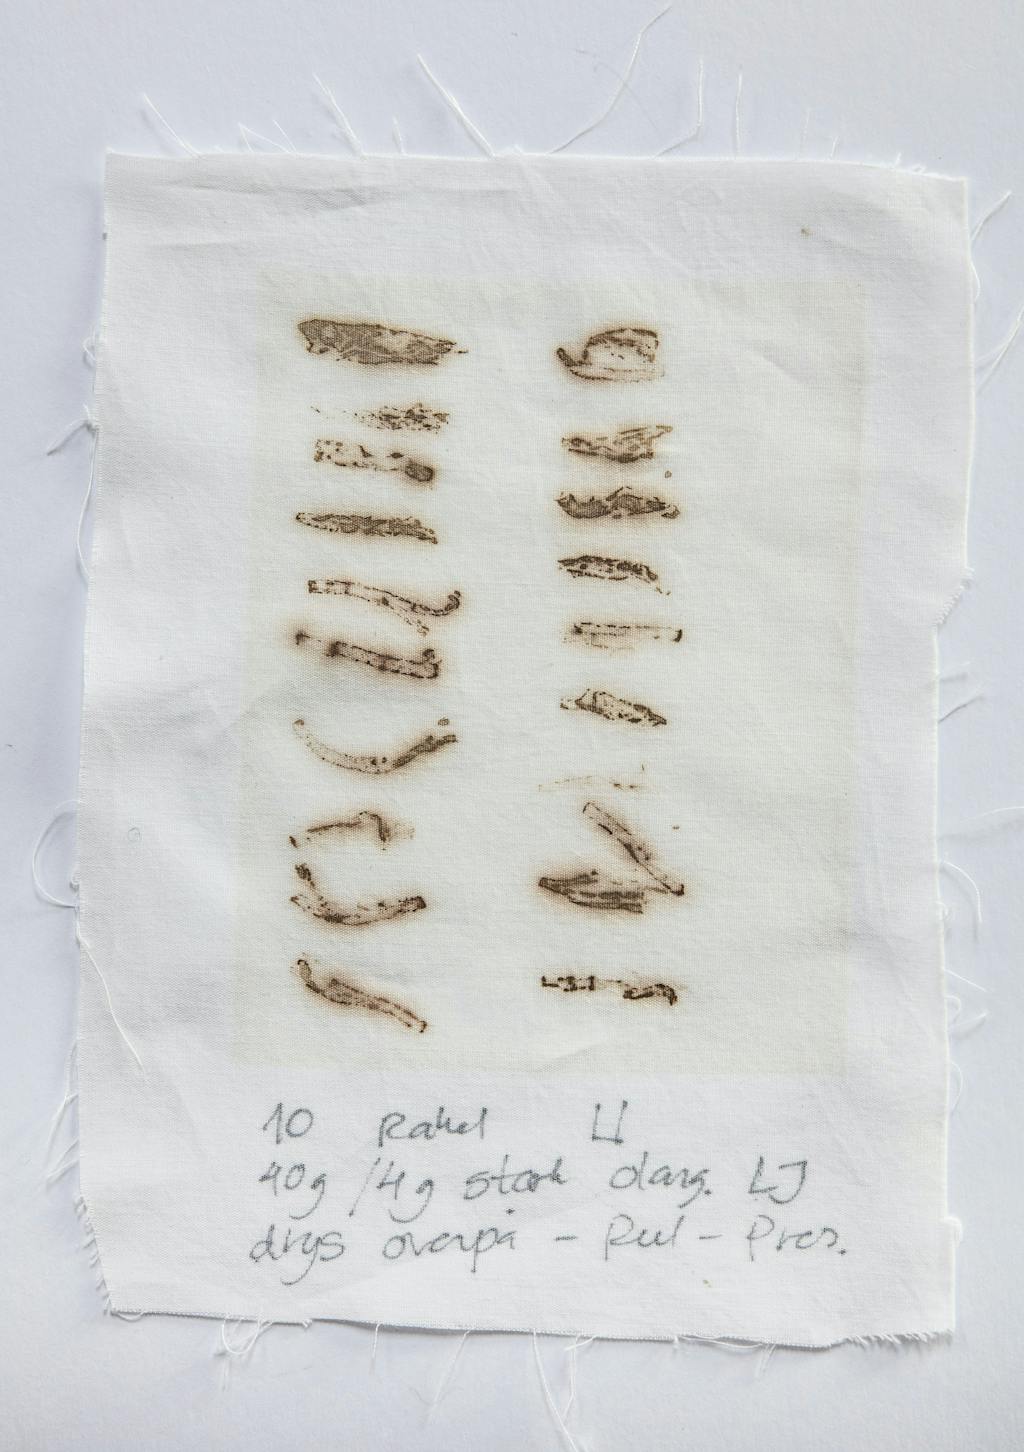 10 Rakel LJ
40g /4g stærk olarg. LJ
drys ovenpå - Rul - Pres.